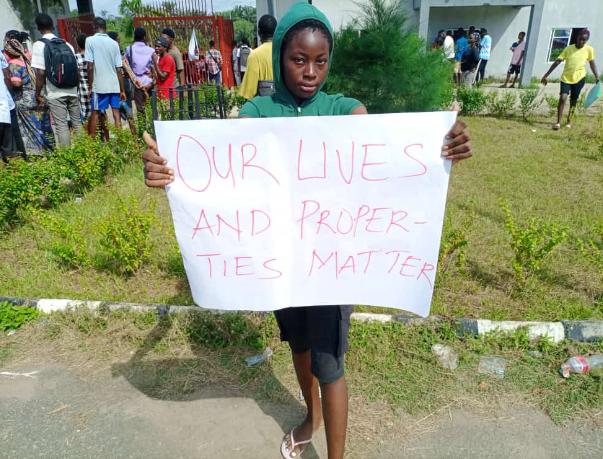 OUR LIVES
AND PROPER-
TIES MATTER